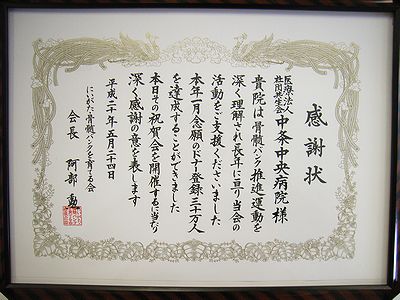 感謝状
医療法人
社団共生会
中条中央病院様
貴院は骨髄バンク推進運動を
深く理解され長年に亘り当会の
活動をご支援くださいました
本年一月念願のドナー登録三十万人
を達成することができました
本日その祝賀会を開催するに当たり
深く感謝の意を表します
平成二十年五月二十四日
にいがた・骨髄バンクを育てる会
会長 阿部 勲